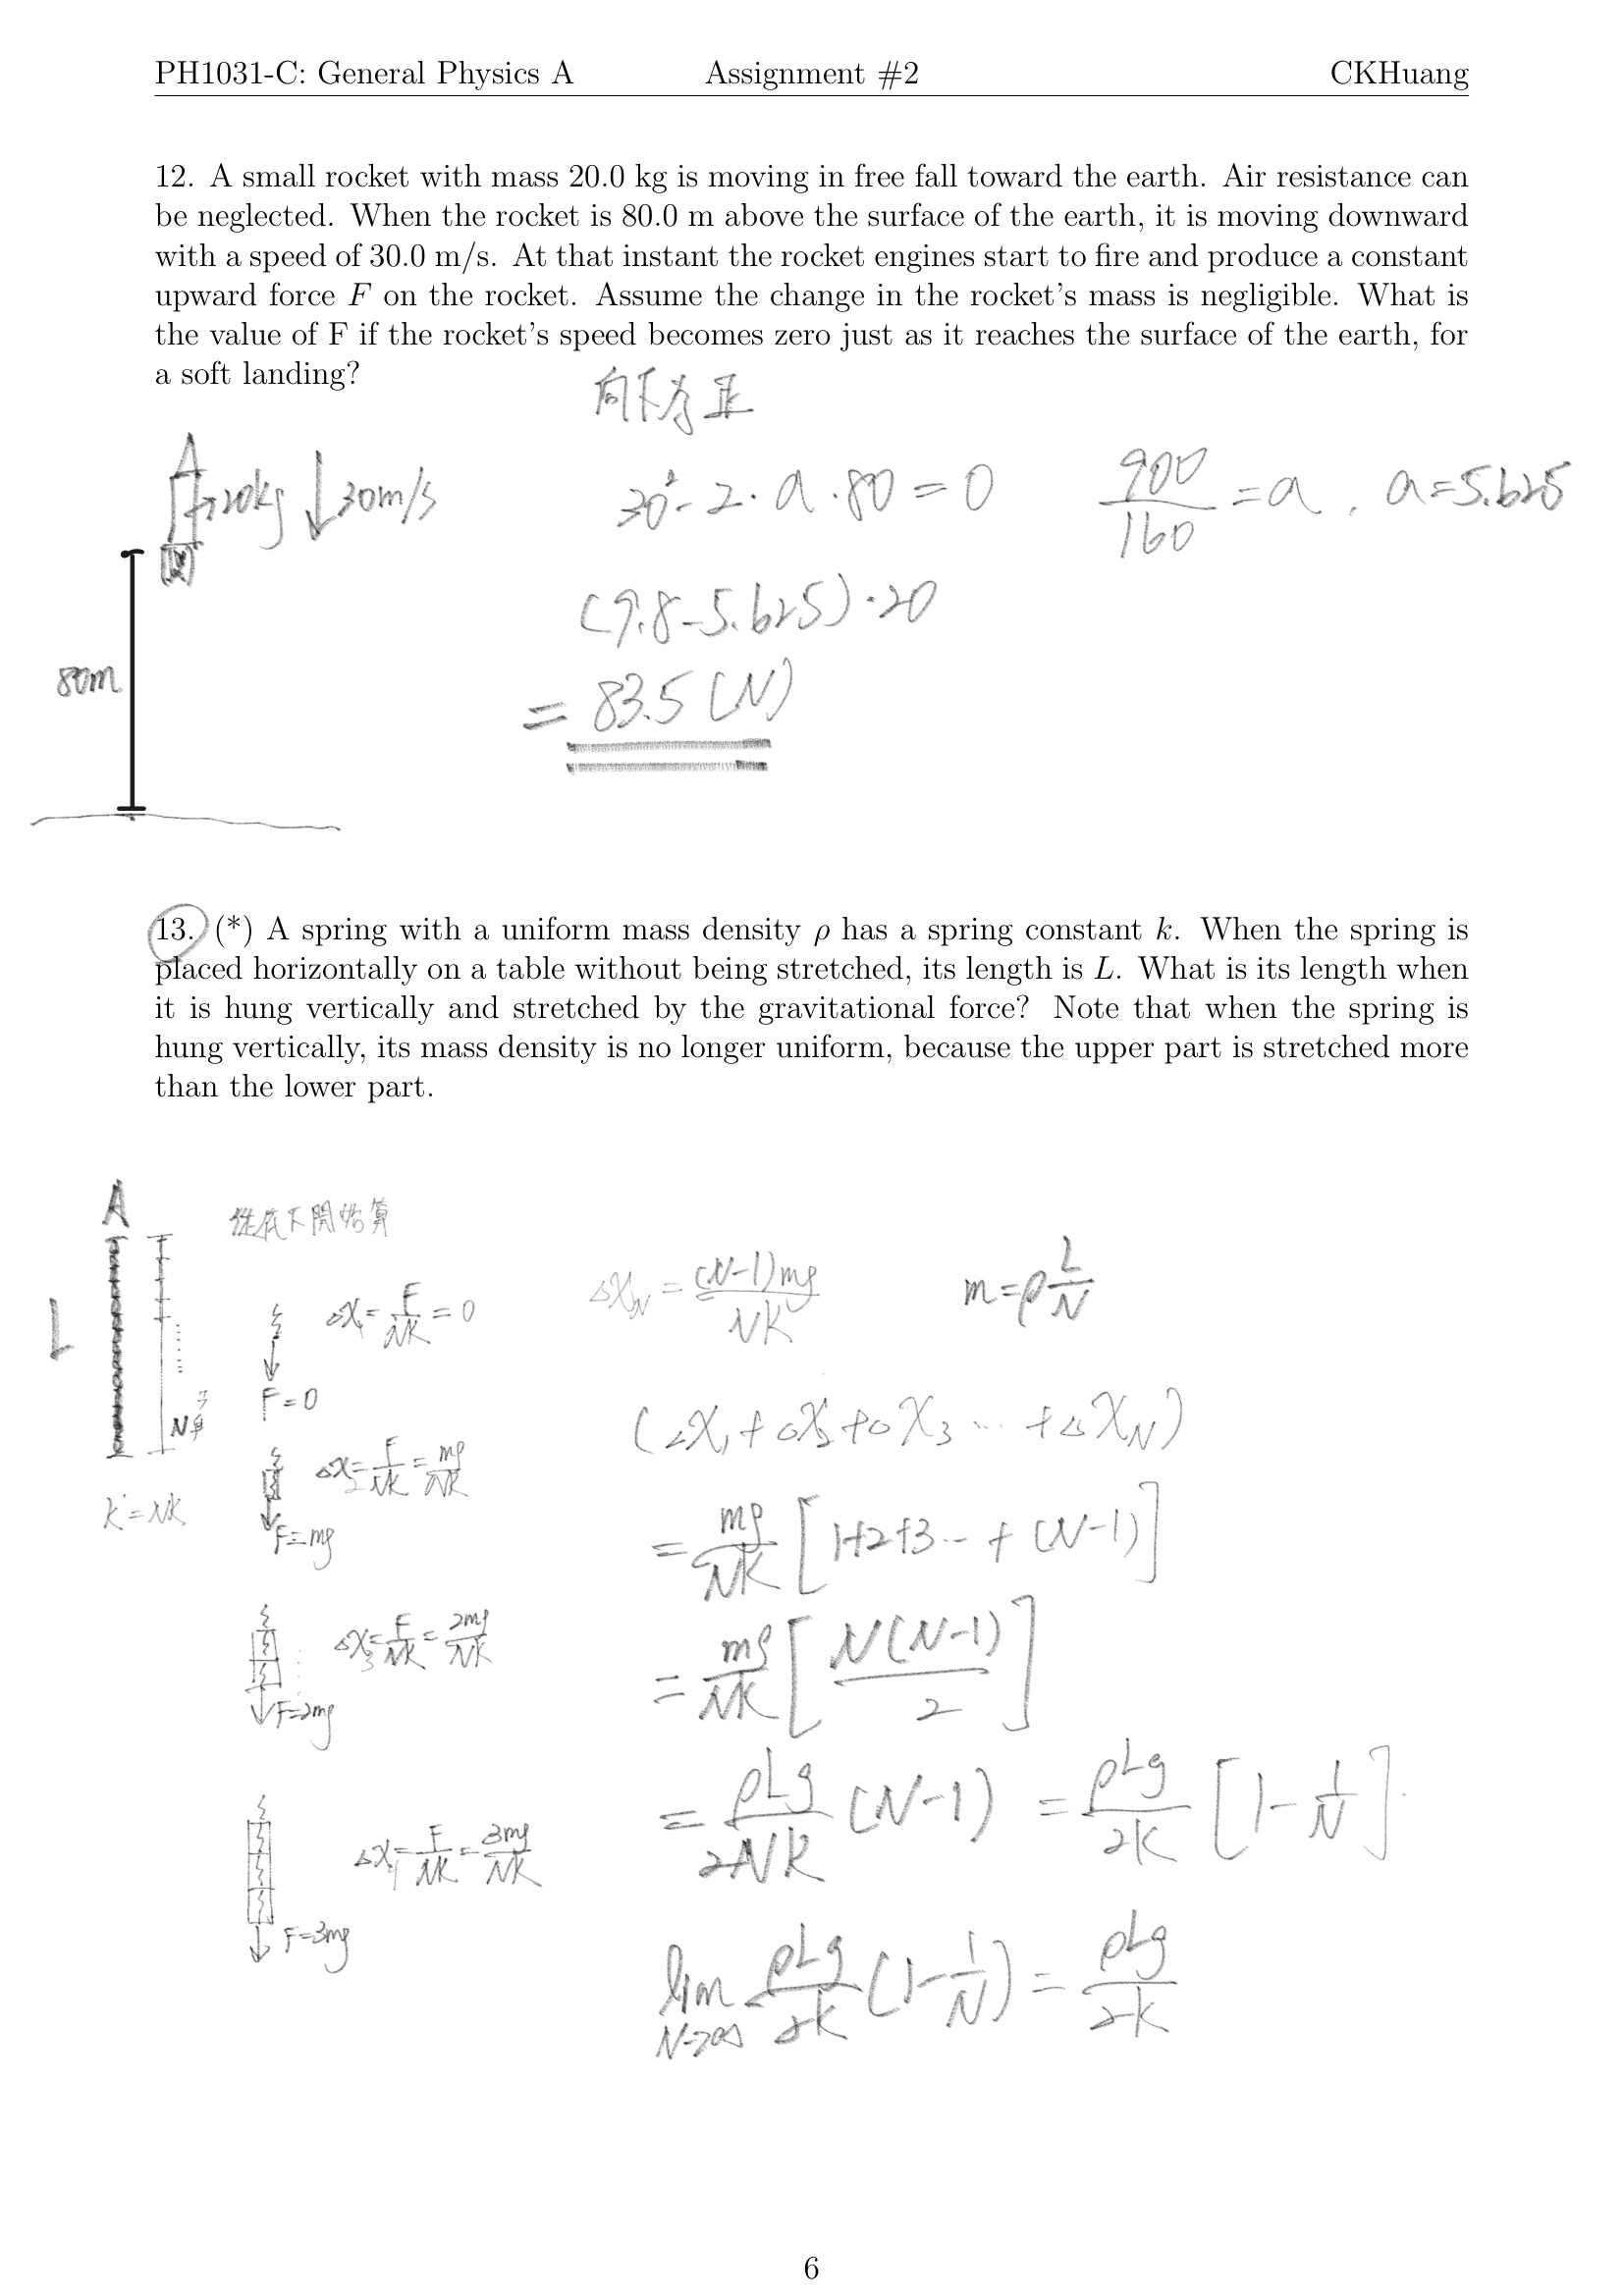 PH1031-C: General Physics A Assignment #2 CKHuang
12. A small rocket with mass 20.0 kg is moving in free fall toward the earth. Air resistance can
be neglected. When the rocket is 80.0 m above the surface of the earth, it is moving downward
with a speed of 30.0 m/s. At that instant the rocket engines start to fire and produce a constant
upward force F on the rocket. Assume the change in the rocket's mass is negligible. What is
the value of F if the rocket's speed becomes zero just as it reaches the surface of the earth, for
a soft landing?
向下為正
20kg ↓30m/s
30² - 2·a·80 = 0
900/160 = a, a=5.625
(9.8-5.625)·20
80m
= 83.5 (N)
13. (*) A spring with a uniform mass density ρ has a spring constant k. When the spring is
placed horizontally on a table without being stretched, its length is L. What is its length when
it is hung vertically and stretched by the gravitational force? Note that when the spring is
hung vertically, its mass density is no longer uniform, because the upper part is stretched more
than the lower part.
A
下開始算
L
N
k'=Nk
Δx₁=F/Nk=0
F=0
Δx₂=F/Nk=mg/Nk
F=mg
Δx₃=F/Nk=2mg/Nk
F=2mg
Δx₄=F/Nk=3mg/Nk
F=3mg
Δx_N=(N-1)mg/Nk
m=ρL/N
(Δx₁+Δx₂+Δx₃...+Δx_N)
=mg/Nk [1+2+3...+(N-1)]
=mg/Nk [N(N-1)/2]
=ρLg/2Nk (N-1) = ρLg/2k [1-1/N]
lim N→∞ ρLg/2k (1-1/N) = ρLg/2k
6